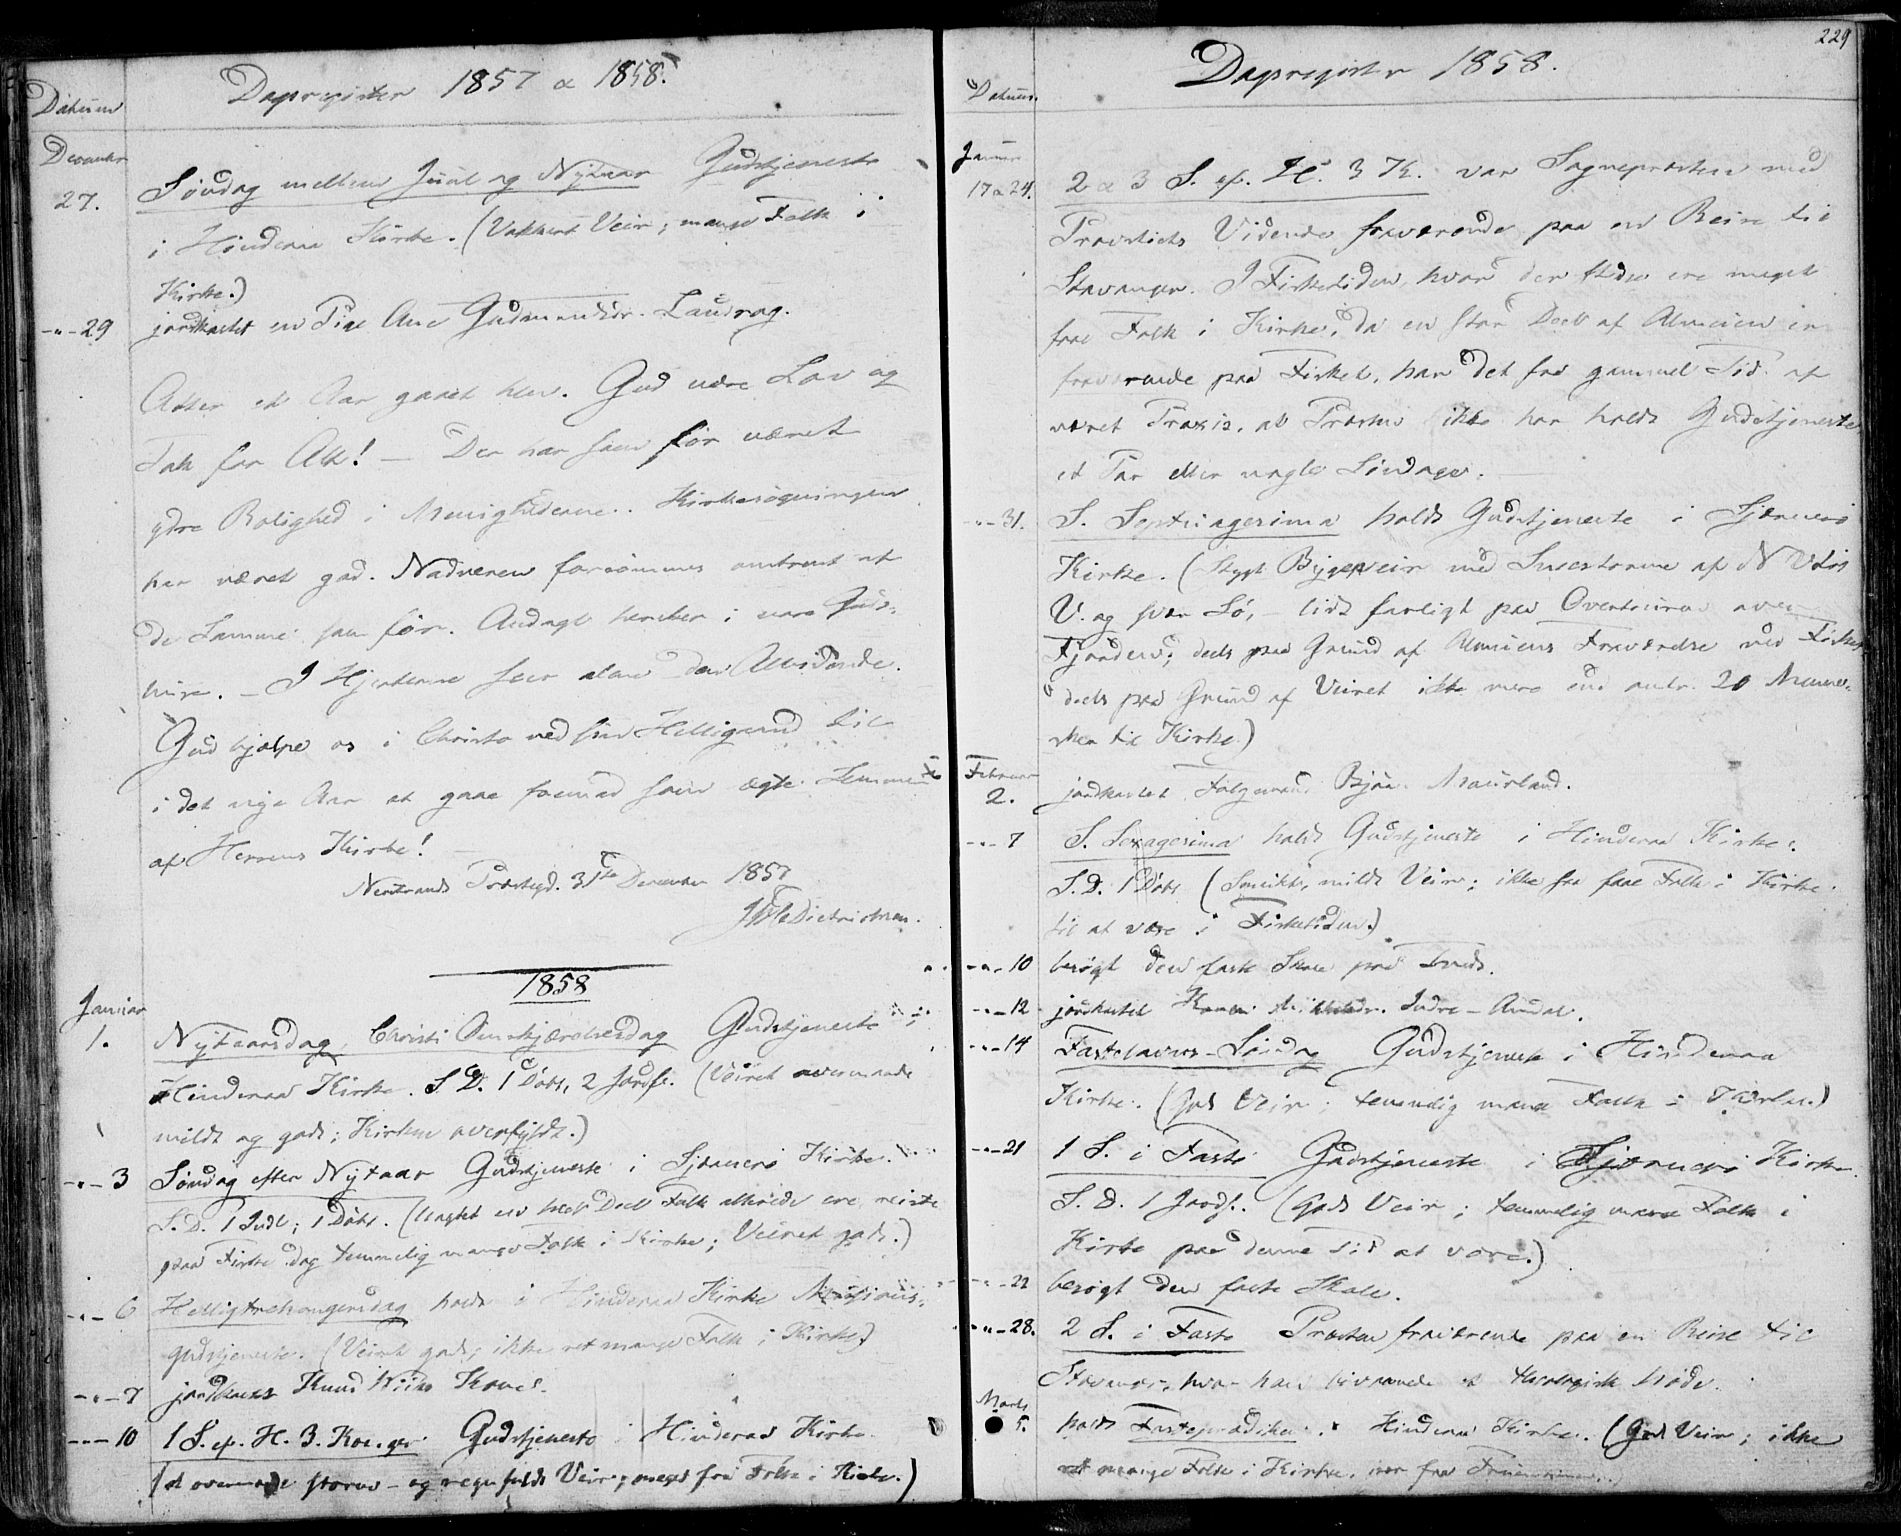 Dagregister 1857 & 1858.
Datum
December
27. Søndag mellem Juul og Nytaar Gudstjeneste
i Hinderaa Kirke. (Vakkert Veir; mange Folk i
Kirke.)
-"-29 jordkastet en Pige Ane Gudmundsdr. Laudrag.
Atter et Aar gaaet hen. Gud være Lov og
Tak for Alt! — Der har som før været
ydre Rolighed i Menighederne. Kirkesøgningen
har været god. Nadveren forsømmes omtrent af
de Samme som før. Andagt hersker i vore Guds-
huse. — I Hjerterne seer alene den Alvidende.
Gud hjælpe os i Christo ved sin Helligaand til
i det nye Aar at gaae fremad som ægte Lemmer
af Herrens Kirke!
Nerstrands Præstegd. 31te December 1857
Dietrichson.
1858
Januar
1. Nytaarsdag, Christi Omskjærelsesdag Gudstjeneste i
Hinderaa Kirke. S. D. 1 Døbt, 2 Jordf. (Veiret overmaade
mildt og godt; Kirken overfyldt.)
-"-3 Søndag efter Nytaar Gudstjeneste i Sjærnerø Kirke.
S. D. 1 Indl; 1 Døbt. (Uagtet en heel Deel Folk allerede ere reiste
paa Fiske dog temmelig mange Folk i Kirke; Veiret godt.)
-"-6 Helligtrekongersdag holdt i Hinderaa Kirke Missions-
gudstjeneste. (Veiret godt; ikke ret mange Folk i Kirke)
-"-7 jordkastet Knud Kone.
-"-10 1 S. ef. H. 3. Konger Gudstjeneste i Hinderaa Kirke.
(et overmaade storm- og regnfuldt Veir; meget faa Folk i Kirke.)
229
Dagregister 1858.
Datum.
Januar
17 & 24. 2 & 3 S. ef. H. 3 K. var Sognepræsten med
Provstiets Vidende fraværende paa en Reise til
Stavanger. I Fisketiden, hvor der stedse ere meget
faae Folk i Kirke, da en stor Deel af Almuen er
fraværende paa Fisket, har det fra gammel Tid af
været Praxis, at Præsten ikke har holdt Gudstjeneste
et Par eller nogle Søndage.
-"-31. S. Septuagesima holdt Gudstjeneste i Sjærnerø
Kirke. (Stygt Bygeveir med Sneestorme af N V
V. og svær Sø, — lidt farligt paa Overturen over
Fjorden; deels paa Grund af Almuens Fraværelse ved Fisket
deels paa Grund af Veiret ikke mere end omtr. 20 Menne-
sker til Kirke.)
Februar
2. jordkastet Bjørn Maurland.
-"-7 S. Sexagesima holdt Gudstjeneste i Hinderaa Kirke.
S. D. 1 Døbt (Smukt, mildt Veir; ikke saa faae Folk i Kirke
til at være i Fisketiden.)
-"-10 besøgt den faste Skole paa
-"-12 jordkastet Indre-Amdal.
-"-14 Fastelavns-Søndag Gudstjeneste i Hinderaa
Kirke. (Godt Veir; temmelig mange Folk i Kirke.)
-"-21 1 S. i Faste Gudstjeneste i Sjærnerø Kirke
S. D. 1 Jordf. (Godt Veir; temmelig mange Folk i
Kirke paa denne Tid at være.)
-"-22 besøgt den faste Skole.
-"-28. 2 S. i Faste Præsten fraværende paa en Reise til
Stavanger, hvor han bivaanede et theologisk Møde.
Marts
5. holdt Fasteprædiken i Hinderaa Kirke. (Godt Veir; ikke
ret mange Folk i Kirke,